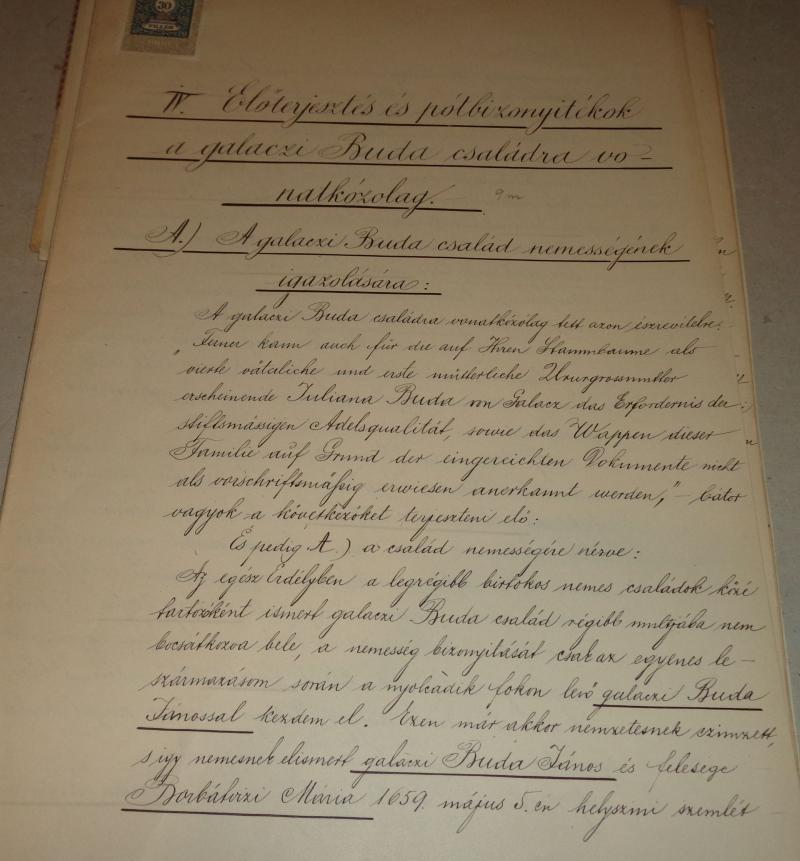 30
FILLÉR
IV. Előterjesztés és pótbizonyitékok
a galaczi Buda családra vo-
natkózolag.
A.) A galaczi Buda család nemességének
igazolására:
A galaczi Buda családra vonatkózólag tett azon észrevételre:
"Ferner kann auch für die auf Ihren Stammbaume als
vierte väterliche und erste mütterliche Ururgrossmutter
erscheinende Juliana Buda von Galacz das Erfordernis der
stiftsmässigen Adelsqualität, sowie das Wappen dieser
Familie auf Grund der eingereichten Dokumente nicht
als vorschriftsmäßig erwiesen anerkannt werden," – bátor
vagyok a következőket terjeszteni elő:
És pedig A.) a család nemességére nézve:
Az egész Erdélyben a legrégibb birtokos nemes családok közé
tartozóként ismert galaczi Buda család régibb multjába nem
bocsátkozva bele, a nemesség bizonyitását csak az egyenes le-
származásom során a nyolcadik fokon levő galaczi Buda
Jánossal kezdem el. Ezen már akkor nemzetesnek czimzett,
s igy nemesnek elismert galaczi Buda János és felesége
Borbátvizi Mária 1659. május 5.én helyszini szemlét